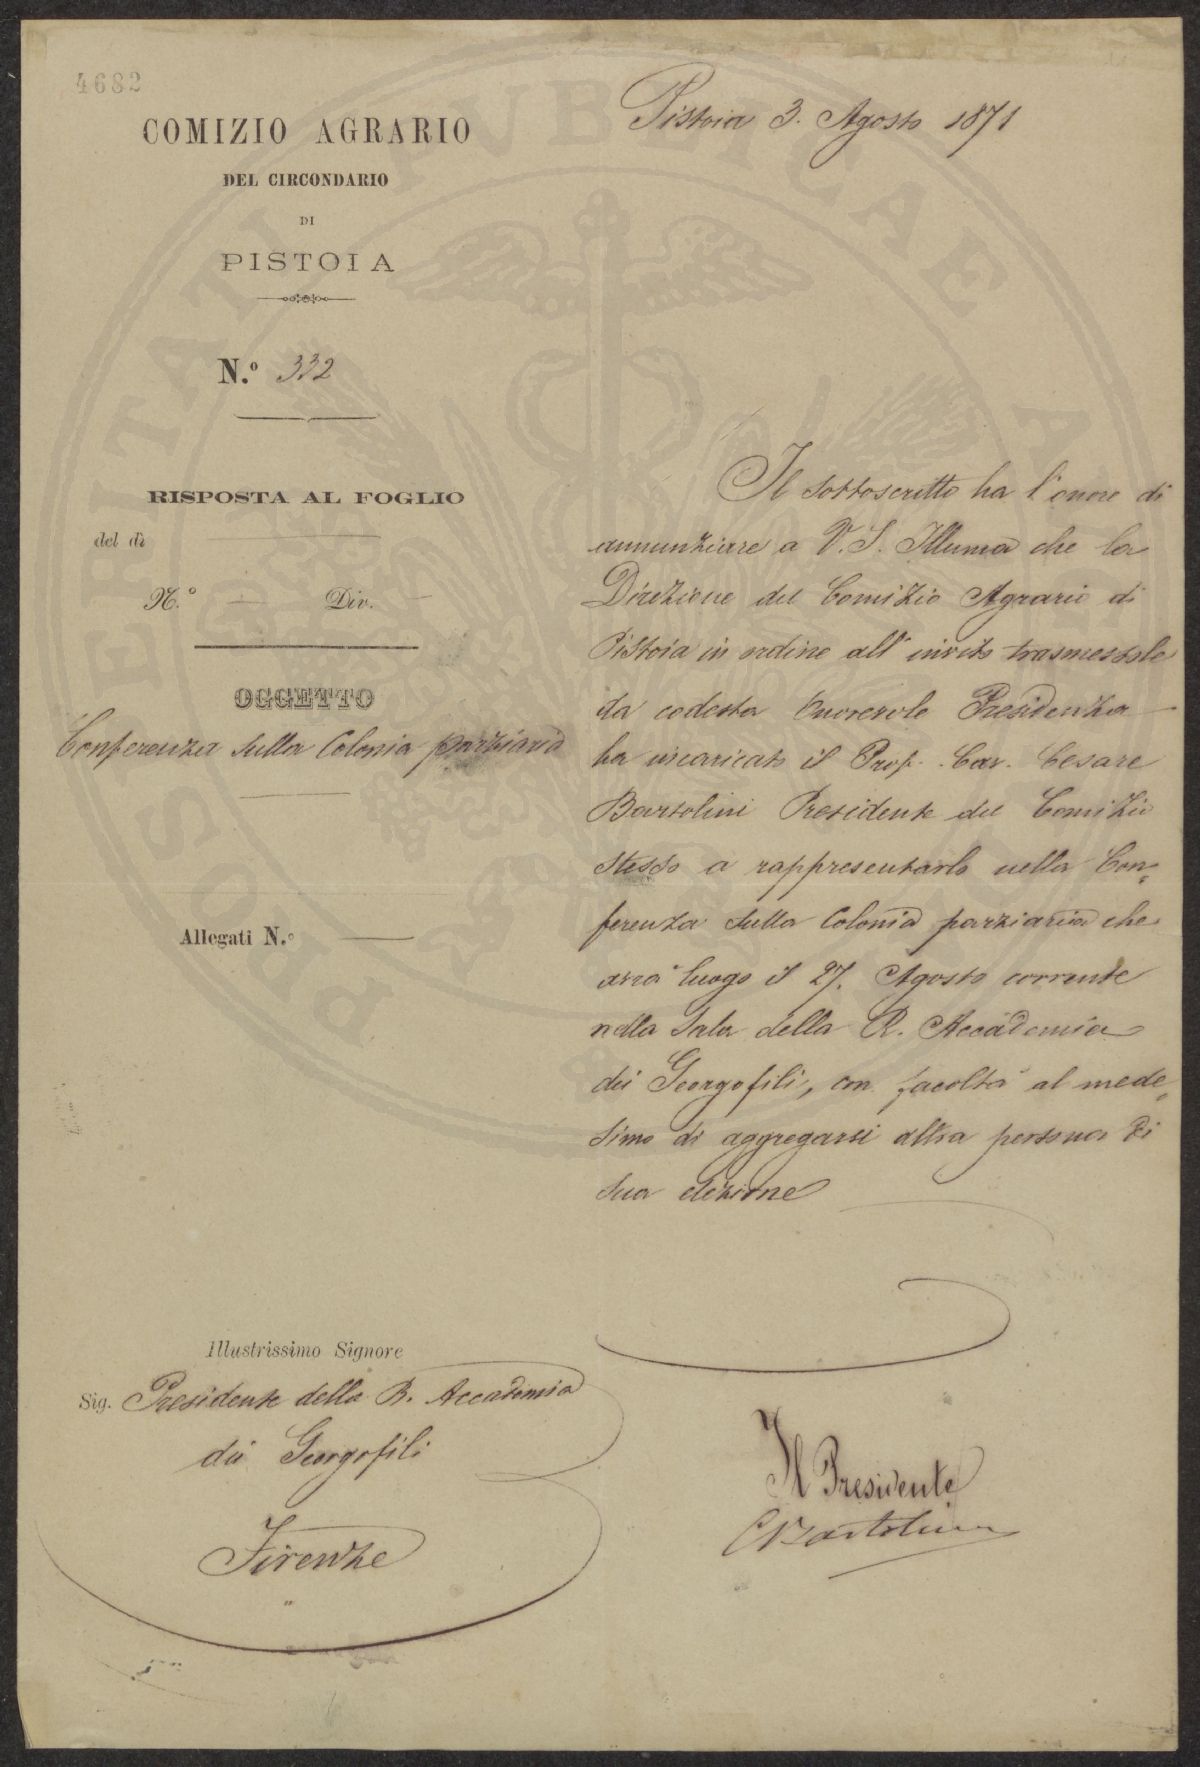 4682
COMIZIO AGRARIO
DEL CIRCONDARIO
DI
PISTOIA
N.º 332
RISPOSTA AL FOGLIO
del dì
N.º Div.
OGGETTO
Conferenza sulla Colonia parziaria
Allegati N.º
Pistoia 3. Agosto 1871
Il sottoscritto ha l'onore di
annunziare a V. S. Illuma che la
Direzione del Comizio Agrario di
Pistoia in ordine all'invito trasmessole
da codesta Onorevole Presidenza
ha incaricato il Prof. Cav. Cesare
Bartolini Presidente del Comizio
stesso a rappresentarlo nella Con=
ferenza sulla Colonia parziaria che
avrà luogo il 27. Agosto corrente
nella Sala della R. Accademia
dei Georgofili, con facoltà al mede=
simo di aggregarsi altra persona di
sua elezione
Illustrissimo Signore
Sig. Presidente della R. Accademia
dei Georgofili
Firenze
Il Presidente
C Bartolini
PROSPERITATI PUBLICAE A